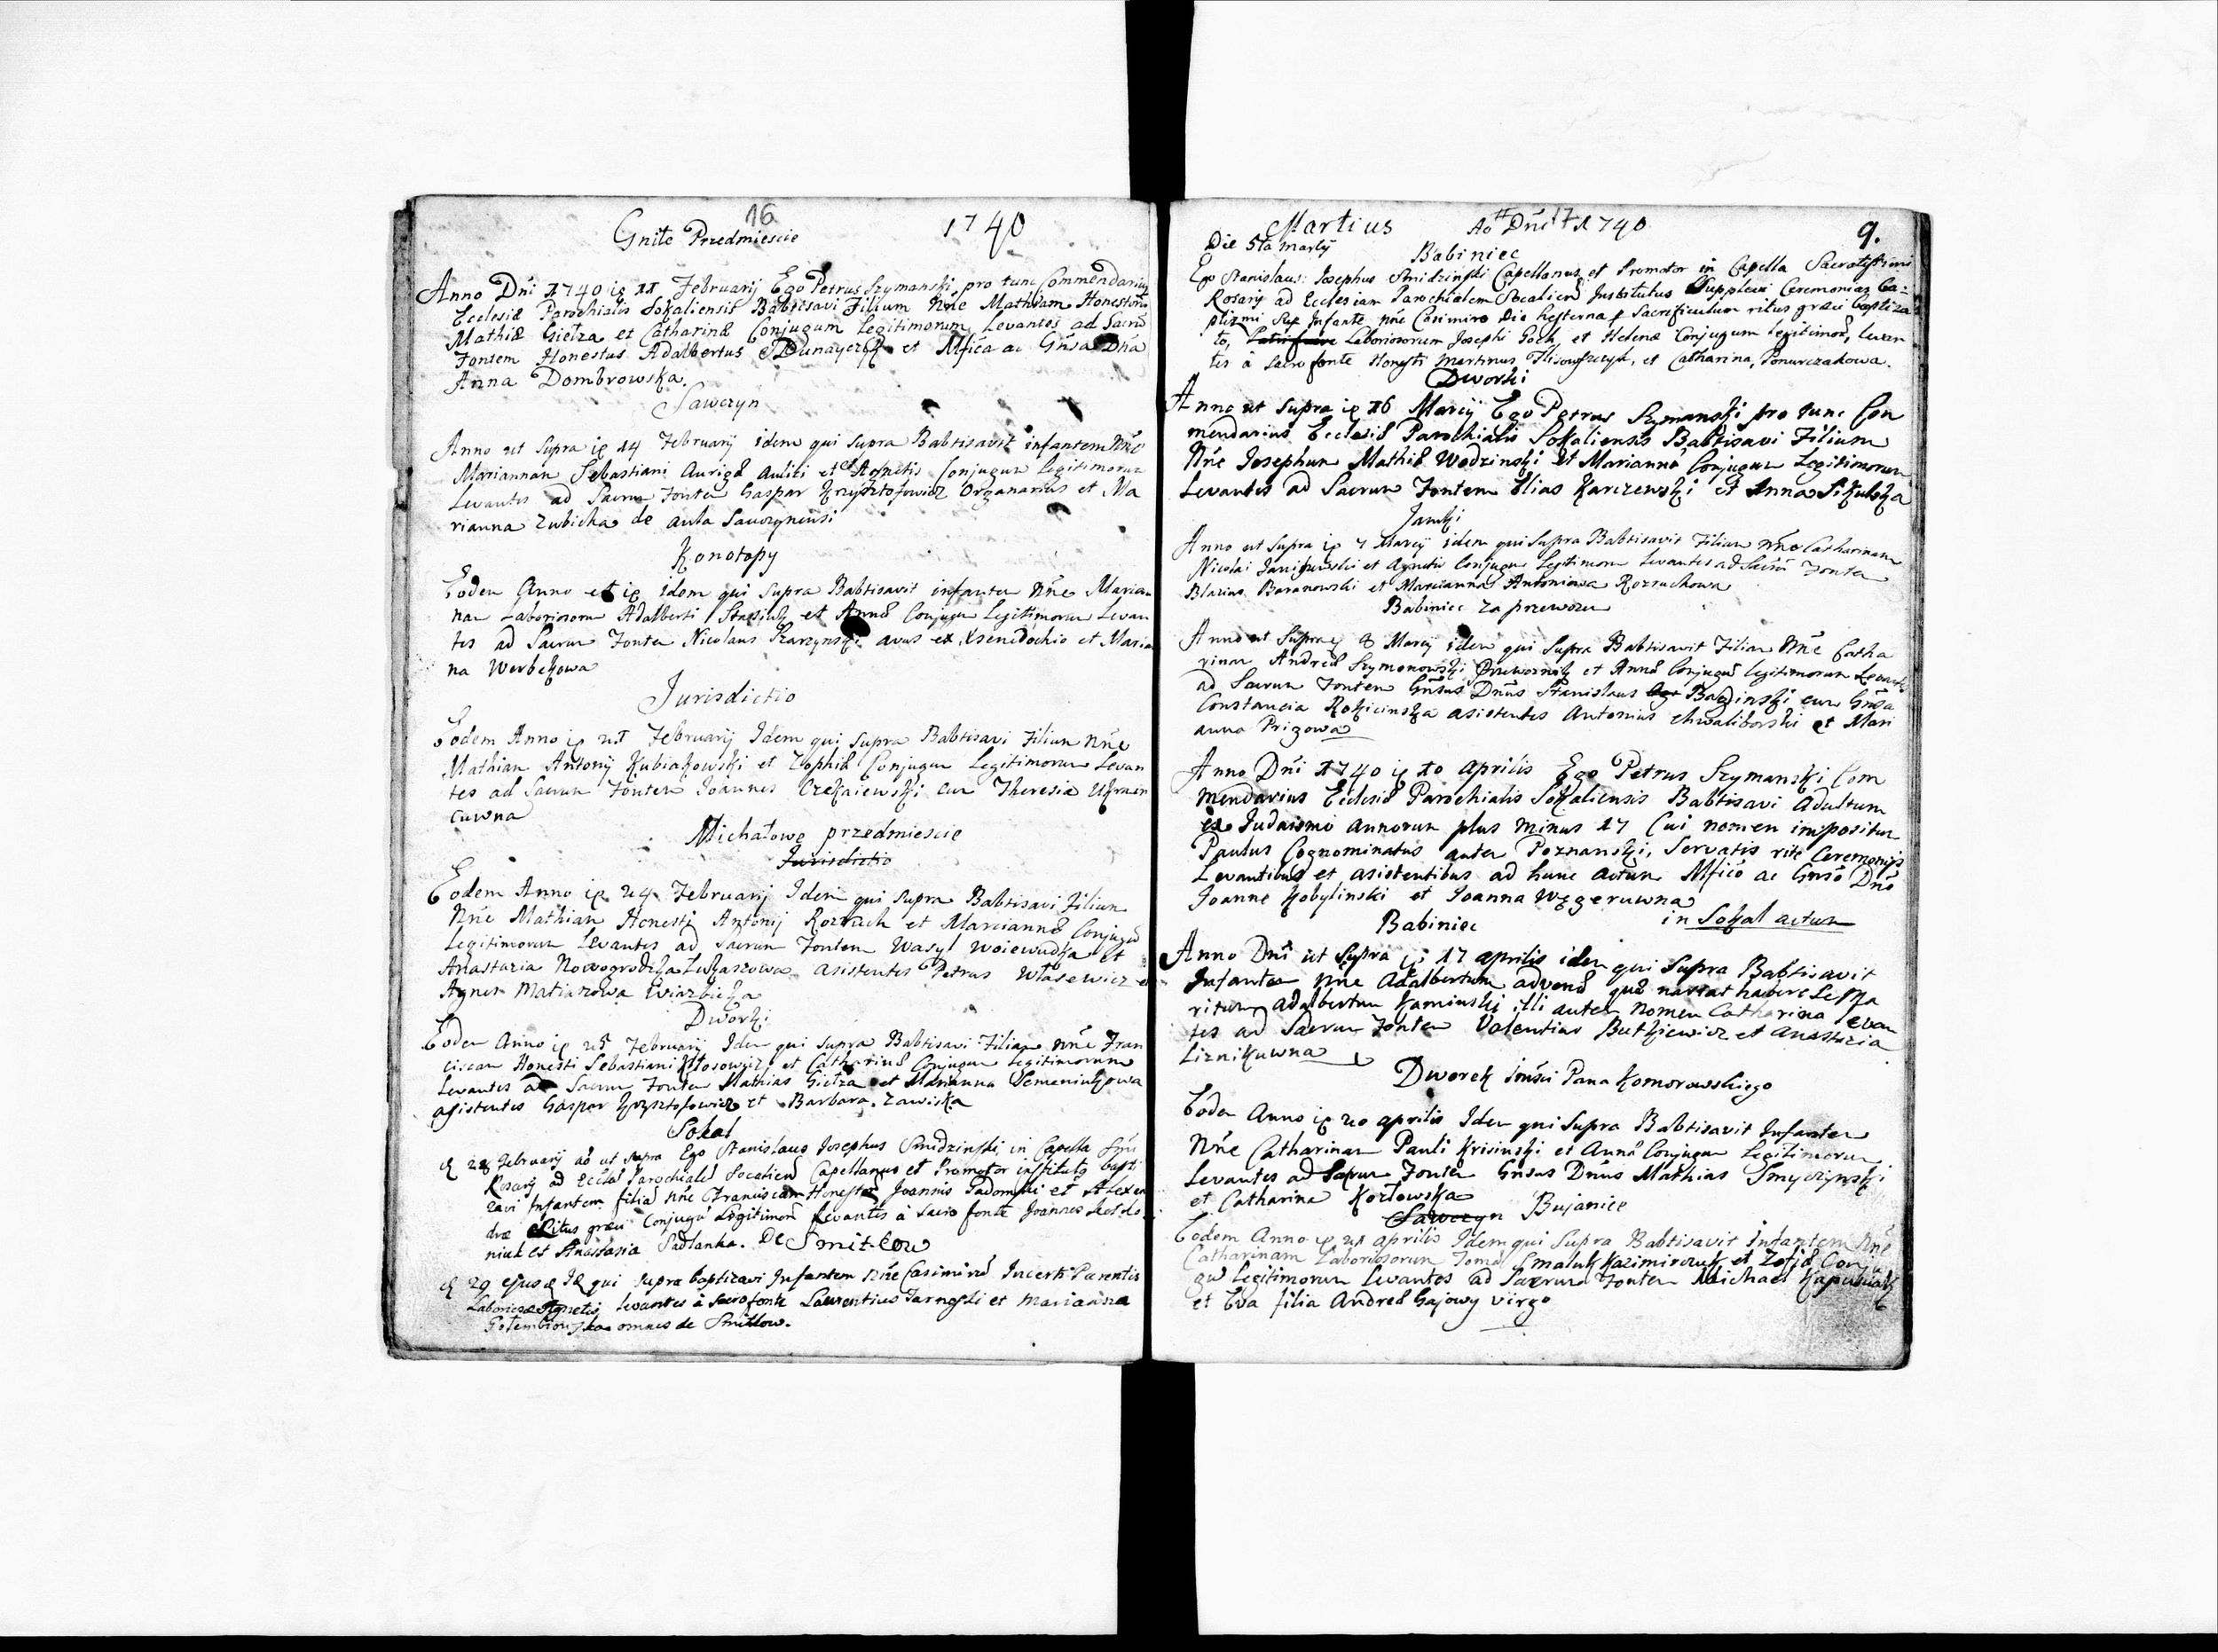 16
Gnite Przedmiescie 1740
Anno Dni 1740 11 Februarij Ego Petrus Szymanski pro tunc Commendarius
Ecclesiæ Parochialis Sokaliensis Babtisavi Filium Nne Mathiam Honestoru
Mathiæ Gietza et Catharinæ Conjugum Legitimorum Levantes ad Sacru
Fontem Honestus Adalbertus Dunayczyk et Mfica ac Gnsa Dna
Anna Dombrowska.
Sawczyn
Anno ut Supra 14 Februarij idem qui supra Babtisavit infantem Nne
Mariannan Sebastiani Aurigæ Auliti et Agnetis Conjugum Legitimorum
Levantes ad Sacrum Fontem Gaspar Krzysztofowicz Organarius et Ma
rianna Zubicka de aula Sawczynensi
Konotopy
Eodem Anno et idem qui Supra Babtisavit infantem Nne Marian
nam Laboriosorum Adalberti Stasiuk et Annæ Conjugum Legitimorum Levan
tes ad Sacrum Fontem Nicolaus Szarzynski avus ex Xsenodochio et Maria
na Werbekowa
Jurisdictio
Eodem Anno 21 Februarij Idem qui supra Babtisavi Filium Nne
Mathiam Antonij Kubiakowski et Zophiæ Conjugum Legitimorum Levan
tes ad Sacrum Fontem Joannes Czekaiewski cum Theresia Ukrain
cuwna
Michałowe przedmiescie
Jurisdictio
Eodem Anno 24 Februarij Idem qui Supra Babtisavi Filium
Nne Mathiam Honesti Antonij Rozruch et Mariannæ Conjugu
Legitimorum Levantes ad Sacrum Fontem Wasyl Woiewudka et
Anastazia Nowogrodzka Lukaszowa asistentes Petrus Własewicz et
Agnes Matiaszowa Ewiazbicka
Dworki
Eodem Anno 25 Februarij Idem qui supra Babtisavi Filiam Nne Fran
ciscam Honesti Sebastiani Kłosowicz et Catharinæ Conjugum Legitimorum
Levantes ad Sacrum Fontem Mathias Gietza et Marianna Semeniukowa
asistentes Gaspar Krzysztofowicz et Barbara Zawiska
Sokal
28 Februarij ao ut supra Ego Stanislaus Josephus Smidzinski in Capella Ssmi
Rosarij ad Eccla Parochiale Socalien Capellanus et Promotor institutus bapti
zavi Infantem filia nne Franciscam Honestor Joannis Padomski et Alexan
dræ Ritus græci Conjugu Legitimor Levantes à sacro fonte Joannes
niuk et Anastasia Sadlanka. De Smitkow
29 ejusdem qui supra baptizavi Infantem Nne Casimiru Incerti Parentis
Laboriosæ Agnetis, levantes à sacro fonte Laurentius Tarnoski et Marianna
Gołembiowska omnes de Smitkow.
Martius Ao Dni 17 1740 9.
Die 5ta martij
Babiniec
Ego Stanislaus Josephus Smidzinski Capellanus et Promotor in Capella Sacratissimi
Rosarij ad Ecclesiam Parochialem Socalien Institutus Supplevi Ceremonias Ba=
ptizmi Infante nne Casimiro Die hesterna Sacrificulum ritus græci baptiza
to, Laboriosorum Josephi Gock, et Helenæ Conjugum Legitimor, levan
tes à sacro fonte Honesti Martinus et Catharina, Ponurczakowa.
Dworki
Anno ut Supra 16 Marcij Ego Petrus Szymanski pro tunc Com
mendarius Ecclesiæ Parochialis Sokaliensis Babtisavi Filium
Nne Josephum Mathiæ Wodzinski et Marianna Conjugum Legitimorum
Levantes ad Sacrum Fontem Elias Karczewski et Anna Sikulska
Janki
Anno ut Supra 7 Marcij idem qui Supra Babtisavit Filiam Nne Catharinam
Nicolai et Agnetis Conjugum Legitimorum Levantes ad Sacru Fontem
Blazius Baranowski et Marianna Antoniowa Rozruchowa
Babiniec za przewozem
Anno ut Supra 8 Marcij idem qui Supra Babtisavit Filiam Nne Catha
rinam Andreæ Szymonowski Przewoznik et Annæ Conjugu Legitimorum Levante
ad Sacrum Fontem Gnsus Dnus Stanislaus Bagdinski cum Gnsa
Constancia Rokicinska asistentes Antonius Chwaliborski et Mari
anna Prizowa
Anno Dni 1740 10 Aprilis Ego Petrus Szymanski Com
mendarius Ecclesiæ Parochialis Sokaliensis Babtisavi Adultum
ex Iudaismo annorum plus minus 17 Cui nomen impositum
Paulus Cognominatus autem Poznanski, Servatis rite Ceremonijs
Levantibus et asistentibus ad hunc actum Mfico ac Gnso Dno
Joanne Kobylinski et Joanna Węgeruwna
Babiniec in Sokal actum
Anno Dni ut Supra 17 Aprilis idem qui supra Babtisavit
Infantem Nne Adalbertum advenæ quæ narrat habere se Ma
ritum Adalbertum Kaminski, illi autem Nomen Catharina Levan
tes ad Sacrum Fontem Valentius Butkiewicz et Anastazia
Liznikuwna
Dworek Imści Pana Komorowskiego
Eodem Anno 20 Aprilis Idem qui Supra Babtisavit Infantem
Nne Catharinam Pauli Krisinski et Annæ Conjugum Legitimorum
Levantes ad Sacrum Fontem Gnsus Dnus Mathias Smyczynski
et Catharina Kozłowska
Sawczyn Bujanice
Eodem Anno 21 Aprilis Idem qui supra Babtisavit Infantem Nne
Catharinam Laboriosorum Toma Smaluk Kazimirczuk et Zofiæ Conju
gu Legitimorum Levantes ad Sacrum Fontem Michael Kapusniak
et Eva filia Andreæ Gajowy virgo